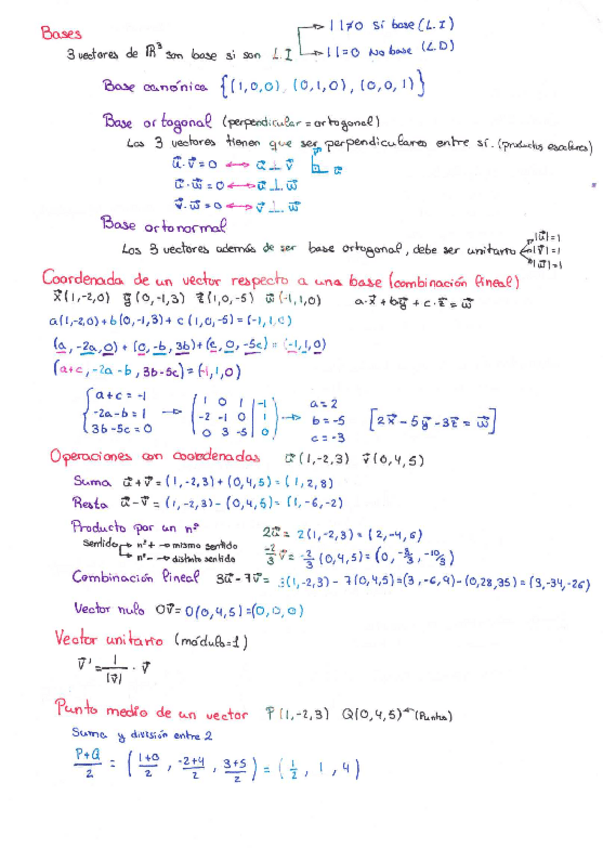 Bases
→ | | ≠ 0 Sí base (L.I)
3 vectores de ℝ³ son base si son L.I
→ | | = 0 No base (L.D)
Base canónica {(1,0,0), (0,1,0), (0,0,1)}
Base ortogonal (perpendicular = ortogonal)
Los 3 vectores tienen que ser perpendiculares entre sí. (productos escalares)
u⃗·v⃗=0 ↔ u⃗ ⊥ v⃗
u⃗·w⃗=0 ↔ u⃗ ⊥ w⃗
v⃗·w⃗=0 ↔ v⃗ ⊥ w⃗
Base ortonormal
Los 3 vectores además de ser base ortogonal, debe ser unitario |u⃗|=1 |v⃗|=1 |w⃗|=1
Coordenada de un vector respecto a una base (combinación lineal)
x⃗(1,-2,0) y⃗(0,-1,3) z⃗(1,0,-5) w⃗(-1,1,0) a·x⃗+by⃗+c·z⃗=w⃗
a(1,-2,0)+b(0,-1,3)+c(1,0,-5)=(-1,1,0)
(a,-2a,0)+(0,-b,3b)+(c,0,-5c)=(-1,1,0)
(a+c,-2a-b,3b-5c)=(-1,1,0)
a+c=-1 1 0 1 | -1 a=2
-2a-b=1 → -2 -1 0 | 1 → b=-5 [2x⃗-5y⃗-3z⃗=w⃗]
3b-5c=0 0 3 -5 | 0 c=-3
Operaciones con coordenadas u⃗(1,-2,3) v⃗(0,4,5)
Suma u⃗+v⃗=(1,-2,3)+(0,4,5)=(1,2,8)
Resta u⃗-v⃗=(1,-2,3)-(0,4,5)=(1,-6,-2)
Producto por un nº 2u⃗=2(1,-2,3)=(2,-4,6)
Sentido → nº+ → mismo sentido
→ nº- → distinto sentido -2/3 v⃗=-2/3(0,4,5)=(0,-8/3,-10/3)
Combinación lineal 3u⃗-7v⃗=3(1,-2,3)-7(0,4,5)=(3,-6,9)-(0,28,35)=(3,-34,-26)
Vector nulo 0v⃗=0(0,4,5)=(0,0,0)
Vector unitario (módulo=1)
v⃗'=1/|v⃗|·v⃗
Punto medio de un vector P(1,-2,3) Q(0,4,5) (Puntos)
Suma y división entre 2
P+Q/2 = (1+0/2, -2+4/2, 3+5/2) = (1/2, 1, 4)